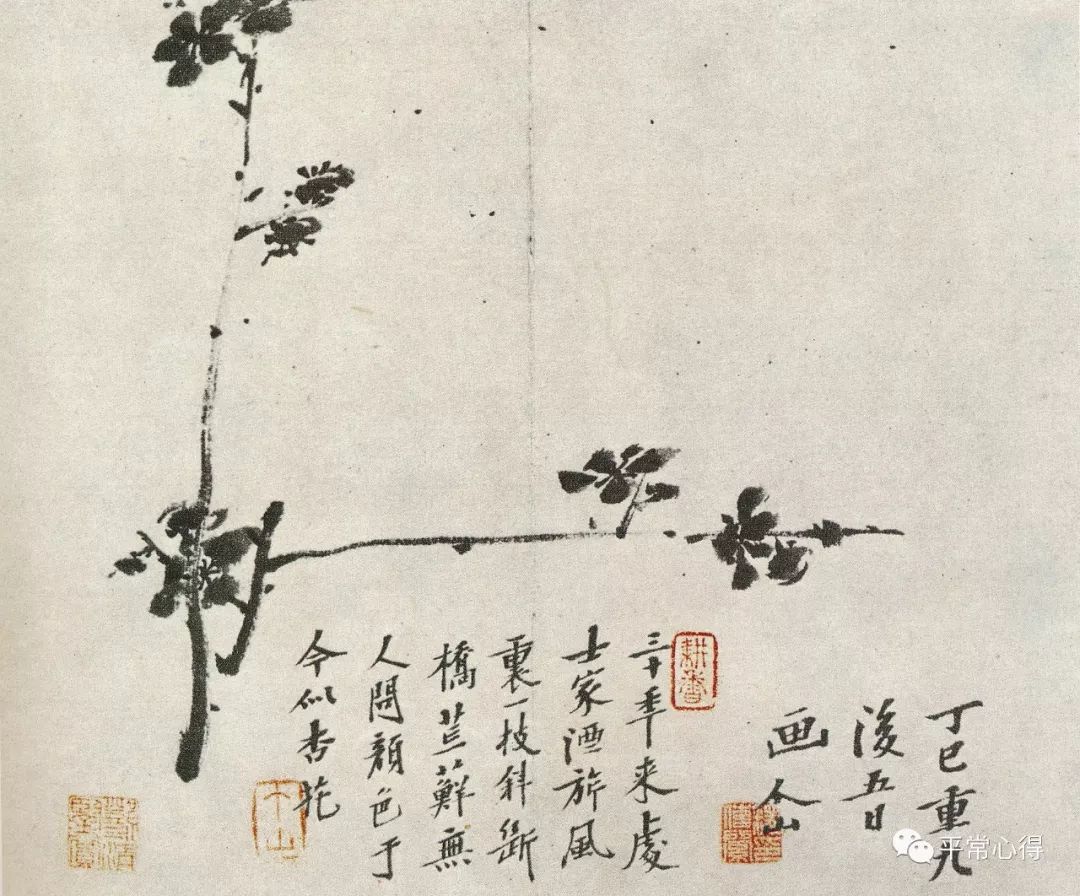 丁巳重九
後五日
画个山
耕香
三十年来處
士家酒旂風
裏一枝斜斷
橋荒蘚無
人問顔色于
今似杏花
个山
平常心得